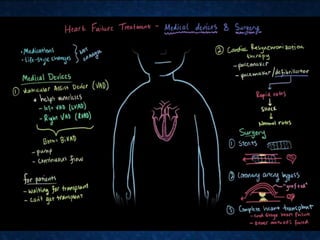 Heart Failure Treatment - Medical devices & Surgery
• Medications
• Life-style changes
not enough
Medical Devices
① Ventricular Assist Device (VAD)
* helps ventricles
- Left VAD (LVAD)
- Right VAD (RVAD)
Both = BiVAD
- pump
- continuous flow
for patients
- waiting for transplant
- can't get transplant
② Cardiac Resynchronization
therapy
- pacemaker
- pacemaker/defibrillator
Rapid rates
Shock
Normal rates
Surgery
① Stents
② Coronary artery bypass
"graft"
③ Complete heart transplant
- end stage heart failure
- other methods failed